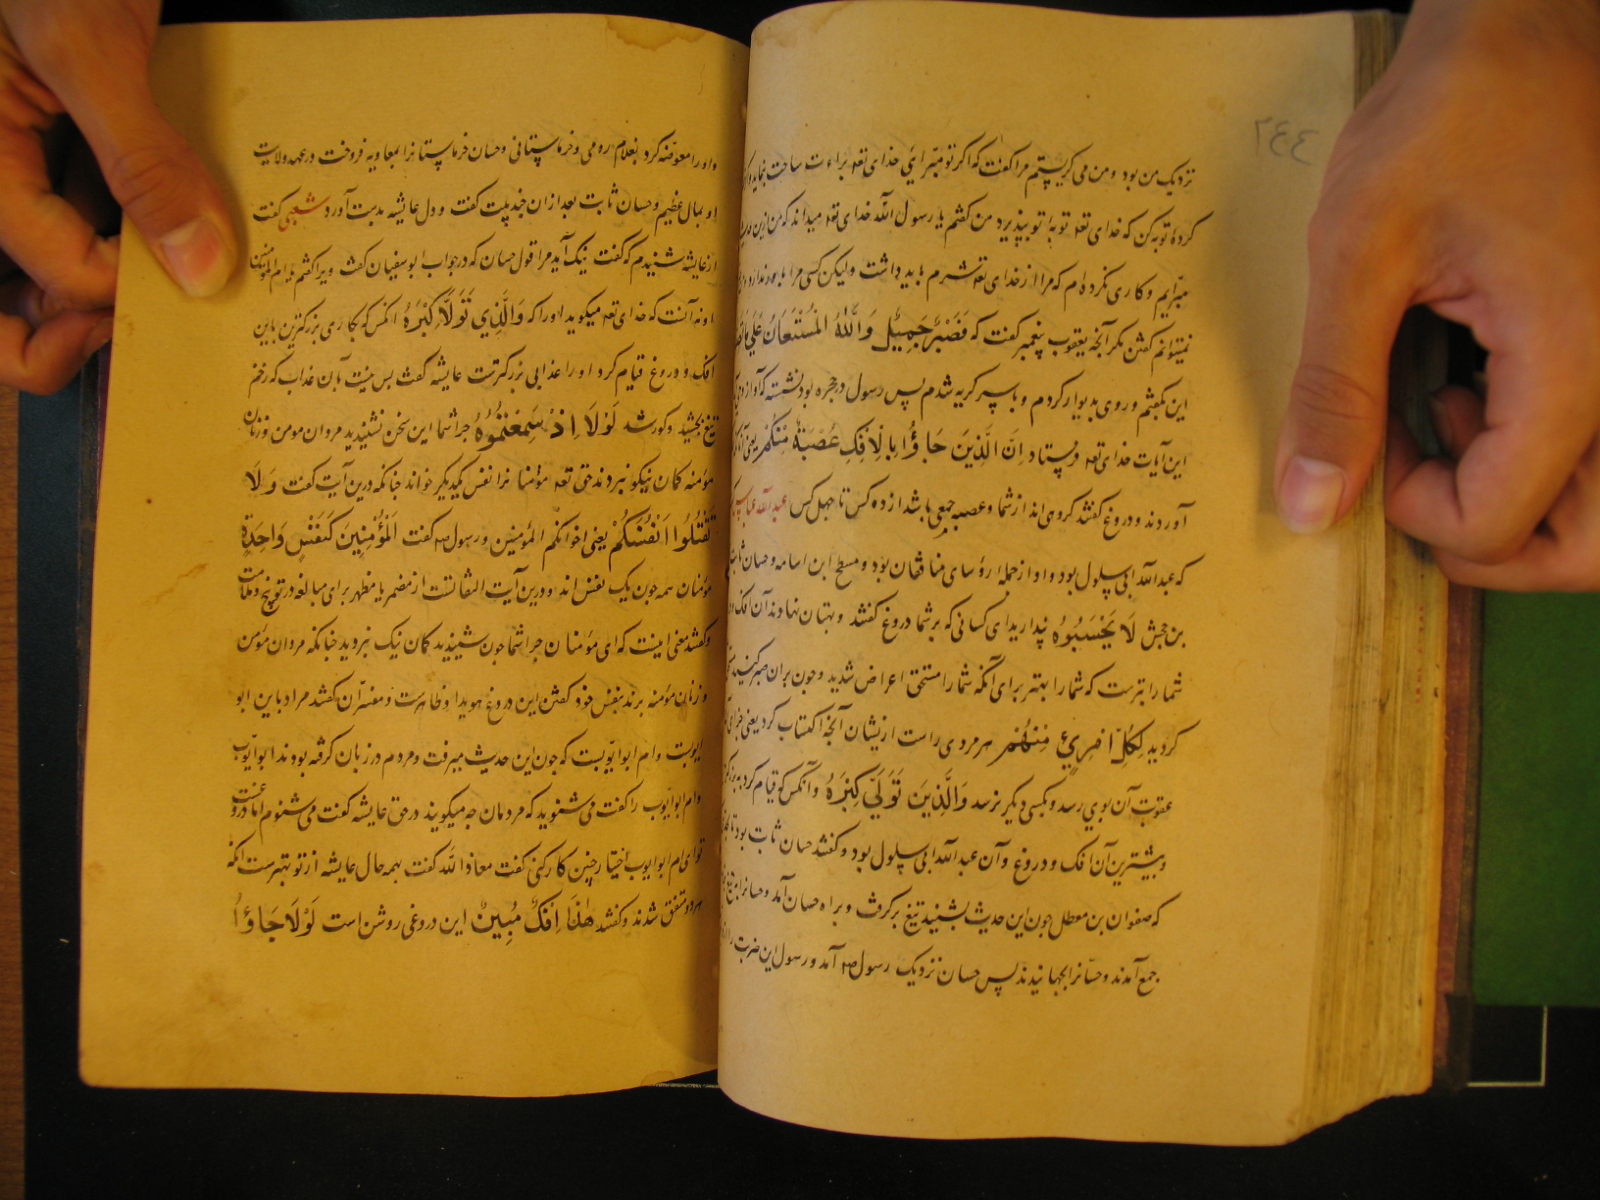 ٢٤٤
نزدیک من بود و من می گریستم مرا کفت که اکر تو مبرایی خدای تعه براءت ساحت
کردهٔ توبه کن که خدای تعه توبهٔ تو بپذیرد من کفتم یا رسول الله خدای تعه میداند که من ازین
مبرایم و کاری نکرده ام که مرا از خدای تعه شرم باید داشت ولیکن کسی مرا باور ندارد
نمیتوانم کفتن مکر آنچه یعقوب پیغمبر کفت که فَصَبْرٌ جَمِیلٌ وَاللّٰهُ الْمُسْتَعَانُ عَلَی
این بکفتم و روی بدیوار کردم و با سر کریه شدم پس رسول در حجره بود نشسته که آواز
این آیات خدای تعه فرستاد اِنَّ الَّذِینَ جَاؤُا بِالْاِفْکِ عُصْبَةٌ مِنْکُمْ یعنی
آوردند و دروغ کفتند کروهی اند از شما و عصبه جمعی باشد از ده کس تا چهل کس عبدالله
که عبدالله ابی سلول بود و او از جملهٔ رؤسای منافقان بود و مسطح ابن اسامه و حسان
بن جحش لَا تَحْسَبُوهُ پندارید ای کسانی که بر شما دروغ کفتند و بهتان نهادند آن افک
شما را بترست که شما را بهتر برای آنکه شما را مستحق اعراض شدید و چون بران صبر
کردید لِکُلِّ امْرِئٍ مِنْهُمْ هر مردی راست ازیشان آنچه اکتساب کرد یعنی جزای
عقوبت آن بوی رسد و بکسی دیکر نرسد وَالَّذِینَ تَوَلَّی کِبْرَهُ و آنکس که قیام کرد
و بیشترین آن افک و دروغ و آن عبدالله ابی سلول بود و کفتند حسان ثابت بود
که صفوان بن معطل چون این حدیث بشنید تیغ برکرفت و براه حسان آمد و حسانرا
جمع آمدند و حسانرا بجهانیدند پس حسان نزدیک رسول صه آمد و رسول این ضرب
و او را معوضه کرد بغلام رومی و خرماستانی و حسان خرماستانرا بمعاویه فروخت در عهد ولایت
او بمال عظیم و حسان ثابت بعد ازان چند بیت کفت و دل عایشه بدست آورد و شعبی کفت
از عایشه شنیدم که کفت نیک آید مرا قول حسان که در جواب ابوسفیان کفت ویرا کفتم یا ام المومنین
او نه آنست که خدای تعه میکوید او را که وَالَّذِي تَوَلَّا کِبْرَهُ آنکس که بکاری بزرکترین باین
افک و دروغ قیام کرد او را عذابی بزرکترست عایشه کفت بس نیست بآن عذاب که زخم
تیغ بچشید و کور شد لَوْلَا اِذْ سَمِعْتُمُوهُ چرا شما این سخن نشنیدید مردان مومن و زنان
مؤمنه کمان نیکو نبردند حق تعه مؤمنانرا نفس یکدیکر خواند چنانکه درین آیت کفت وَلَا
تَقْتُلُوا اَنْفُسَکُمْ یعنی اخوانکم المؤمنین و رسول صه کفت اَلْمُؤْمِنِینَ کَنَفْسٍ وَاحِدَةٍ
مؤمنان همه چون یک نفس اند و درین آیت التفاتست از مضمر با مظهر برای مبالغه در توبیخ و ملامت
و کفتند معنی اینست که ای مؤمنان چرا شما چون شنیدید کمان نیک نبردید چنانکه مردان مؤمن
و زنان مؤمنه برند بنفس خود کفتن این دروغ هویدا و ظاهرست و مفسرآن کفتند مراد باین ابو
ایوبست و ام ابو ایوبست که چون این حدیث میرفت و مردم در زبان کرفته بودند ابو ایوب
و ام ابو ایوب را کفت می شنوید که مردمان چه میکویند در حق عایشه کفت می شنوم اما دروغست
توای ام ابو ایوب اختیار چنین کار کنی کفت معاذ الله کفت بهمه حال عایشه از تو بهترست آنکه
هر دو متفق شدند و کفتند هٰذَا اِفْکٌ مُبِینٌ این دروغی روشن است لَوْلَا جَاؤُا